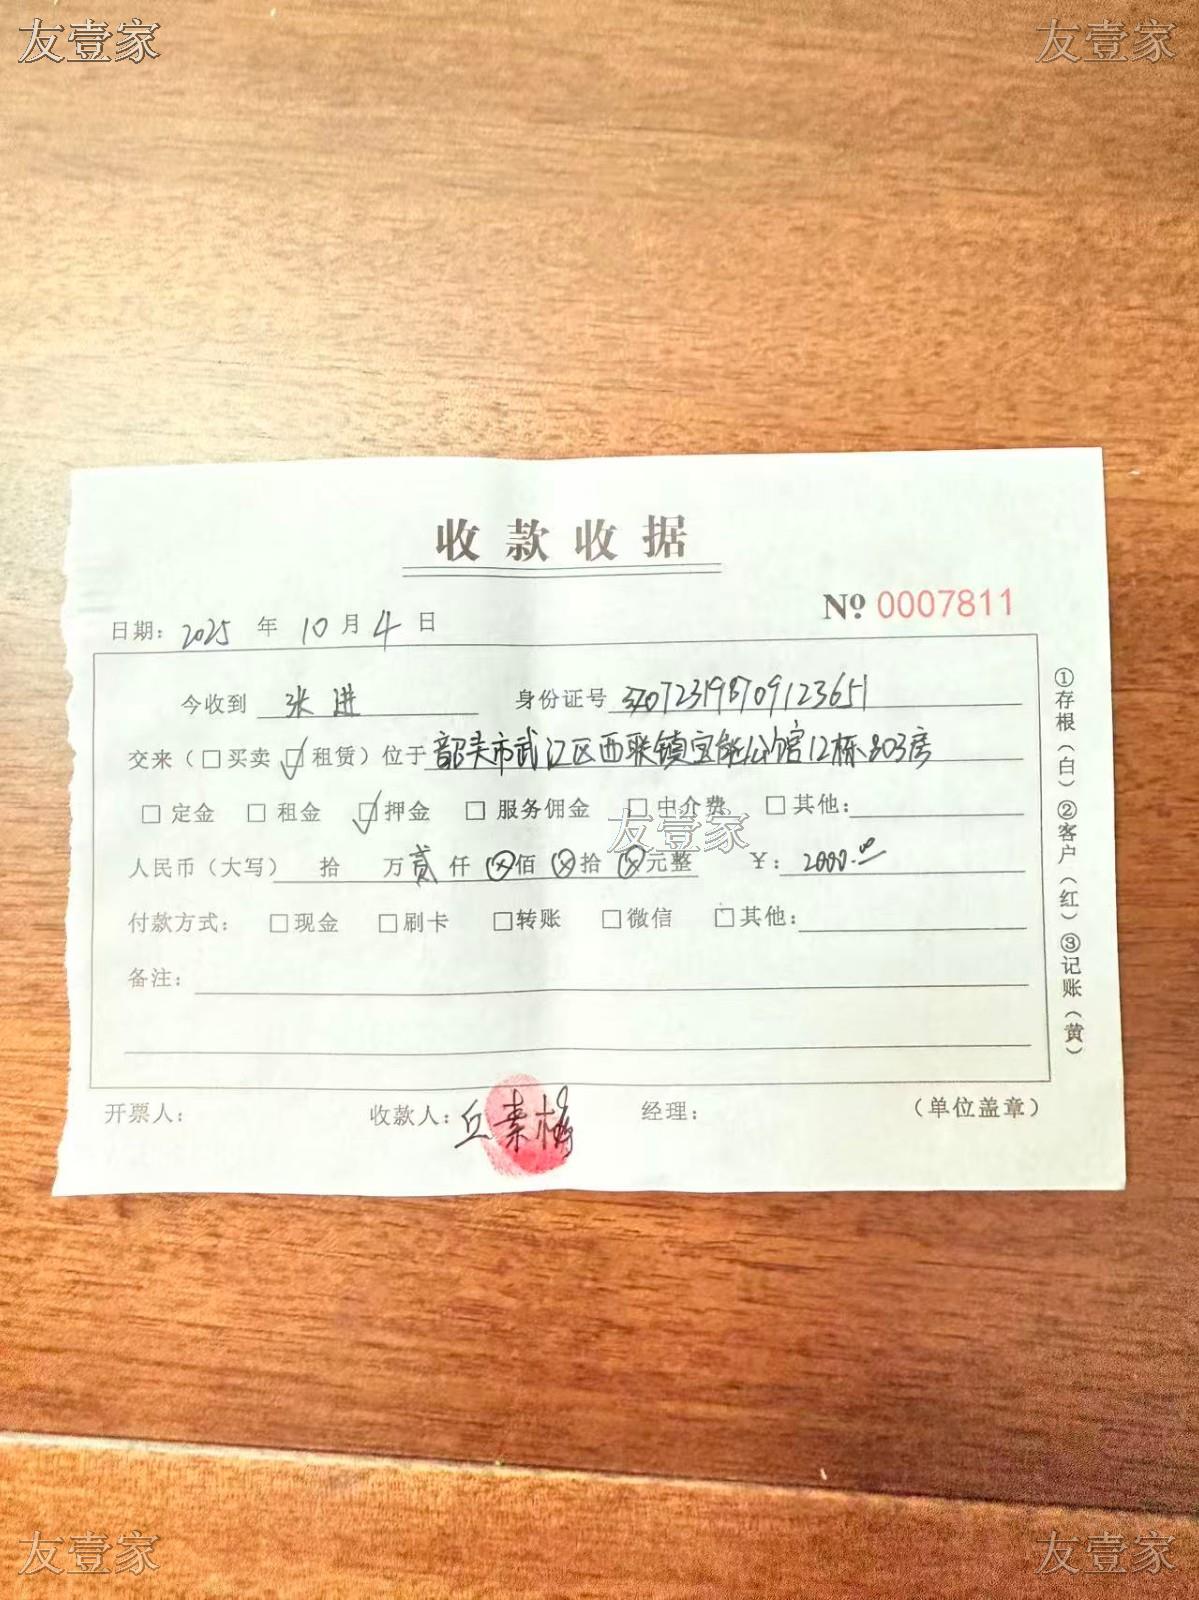 友壹家 友壹家
收款收据
№ 0007811
日期: 2025 年 10 月 4 日
今收到 张进 身份证号 370723198709123651
交来(□买卖 ☑租赁)位于 韶关市武江区西联镇宝能公馆12栋803房
□定金 □租金 ☑押金 □服务佣金 □中介费 □其他:
友壹家
人民币(大写) 拾 万 贰 仟 ⊗佰 ⊗拾 ⊗元整 ¥: 2000.00
付款方式: □现金 □刷卡 □转账 □微信 □其他:
备注:
开票人: 收款人: 丘素梅 经理: (单位盖章)
①存根(白)②客户(红)③记账(黄)
友壹家 友壹家